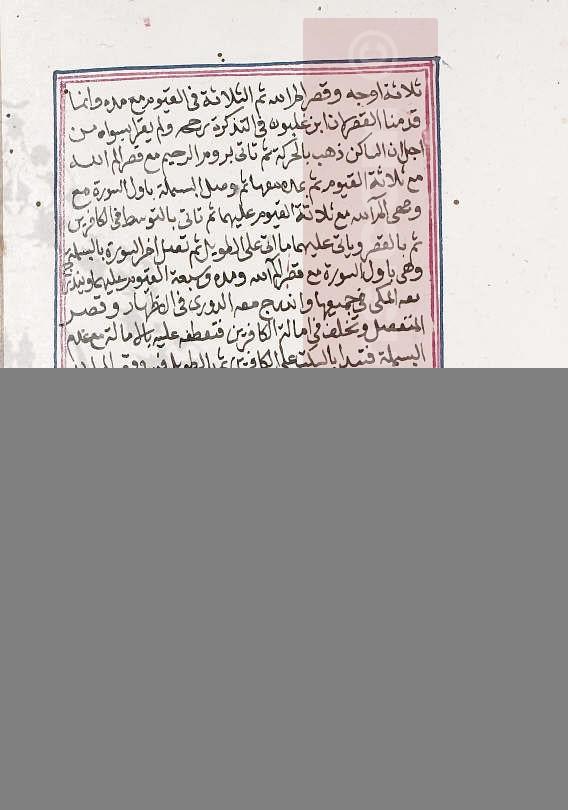 ثلاثة اوجه وقصر الم الله ثم الثلاثة في القيوم مع مده وانما
قدمنا القصر لان ابن غلبون في التذكرة رجحه ولم يقرا بسواه من
اجل ان الساكن ذهب بالحركة ثم تاتي بروم الرحيم مع قصر الم الله
مع ثلاثة القيوم ثم مده معها ثم وصل البسملة باول السورة مع
وهي الم الله مع ثلاثة القيوم عليهما ثم تاتي بالتوسط في الكافرين
ثم بالقصر وياتي عليهما ما اتى على الطويل ثم تصل اخر السورة بالبسملة
وهي باول السورة مع قصر الم الله ومده وسبعة القيوم عليهما ويندرج
معه المكي في جميعها واندرج معه الدوري في الاظهار وقصر
المنفصل وتخلف في امالة الكافرين فتعطفه عليه بالامالة مع عدم
البسملة فتبدا بالسكت على الكافرين ثم بالطويل فيه وقصر